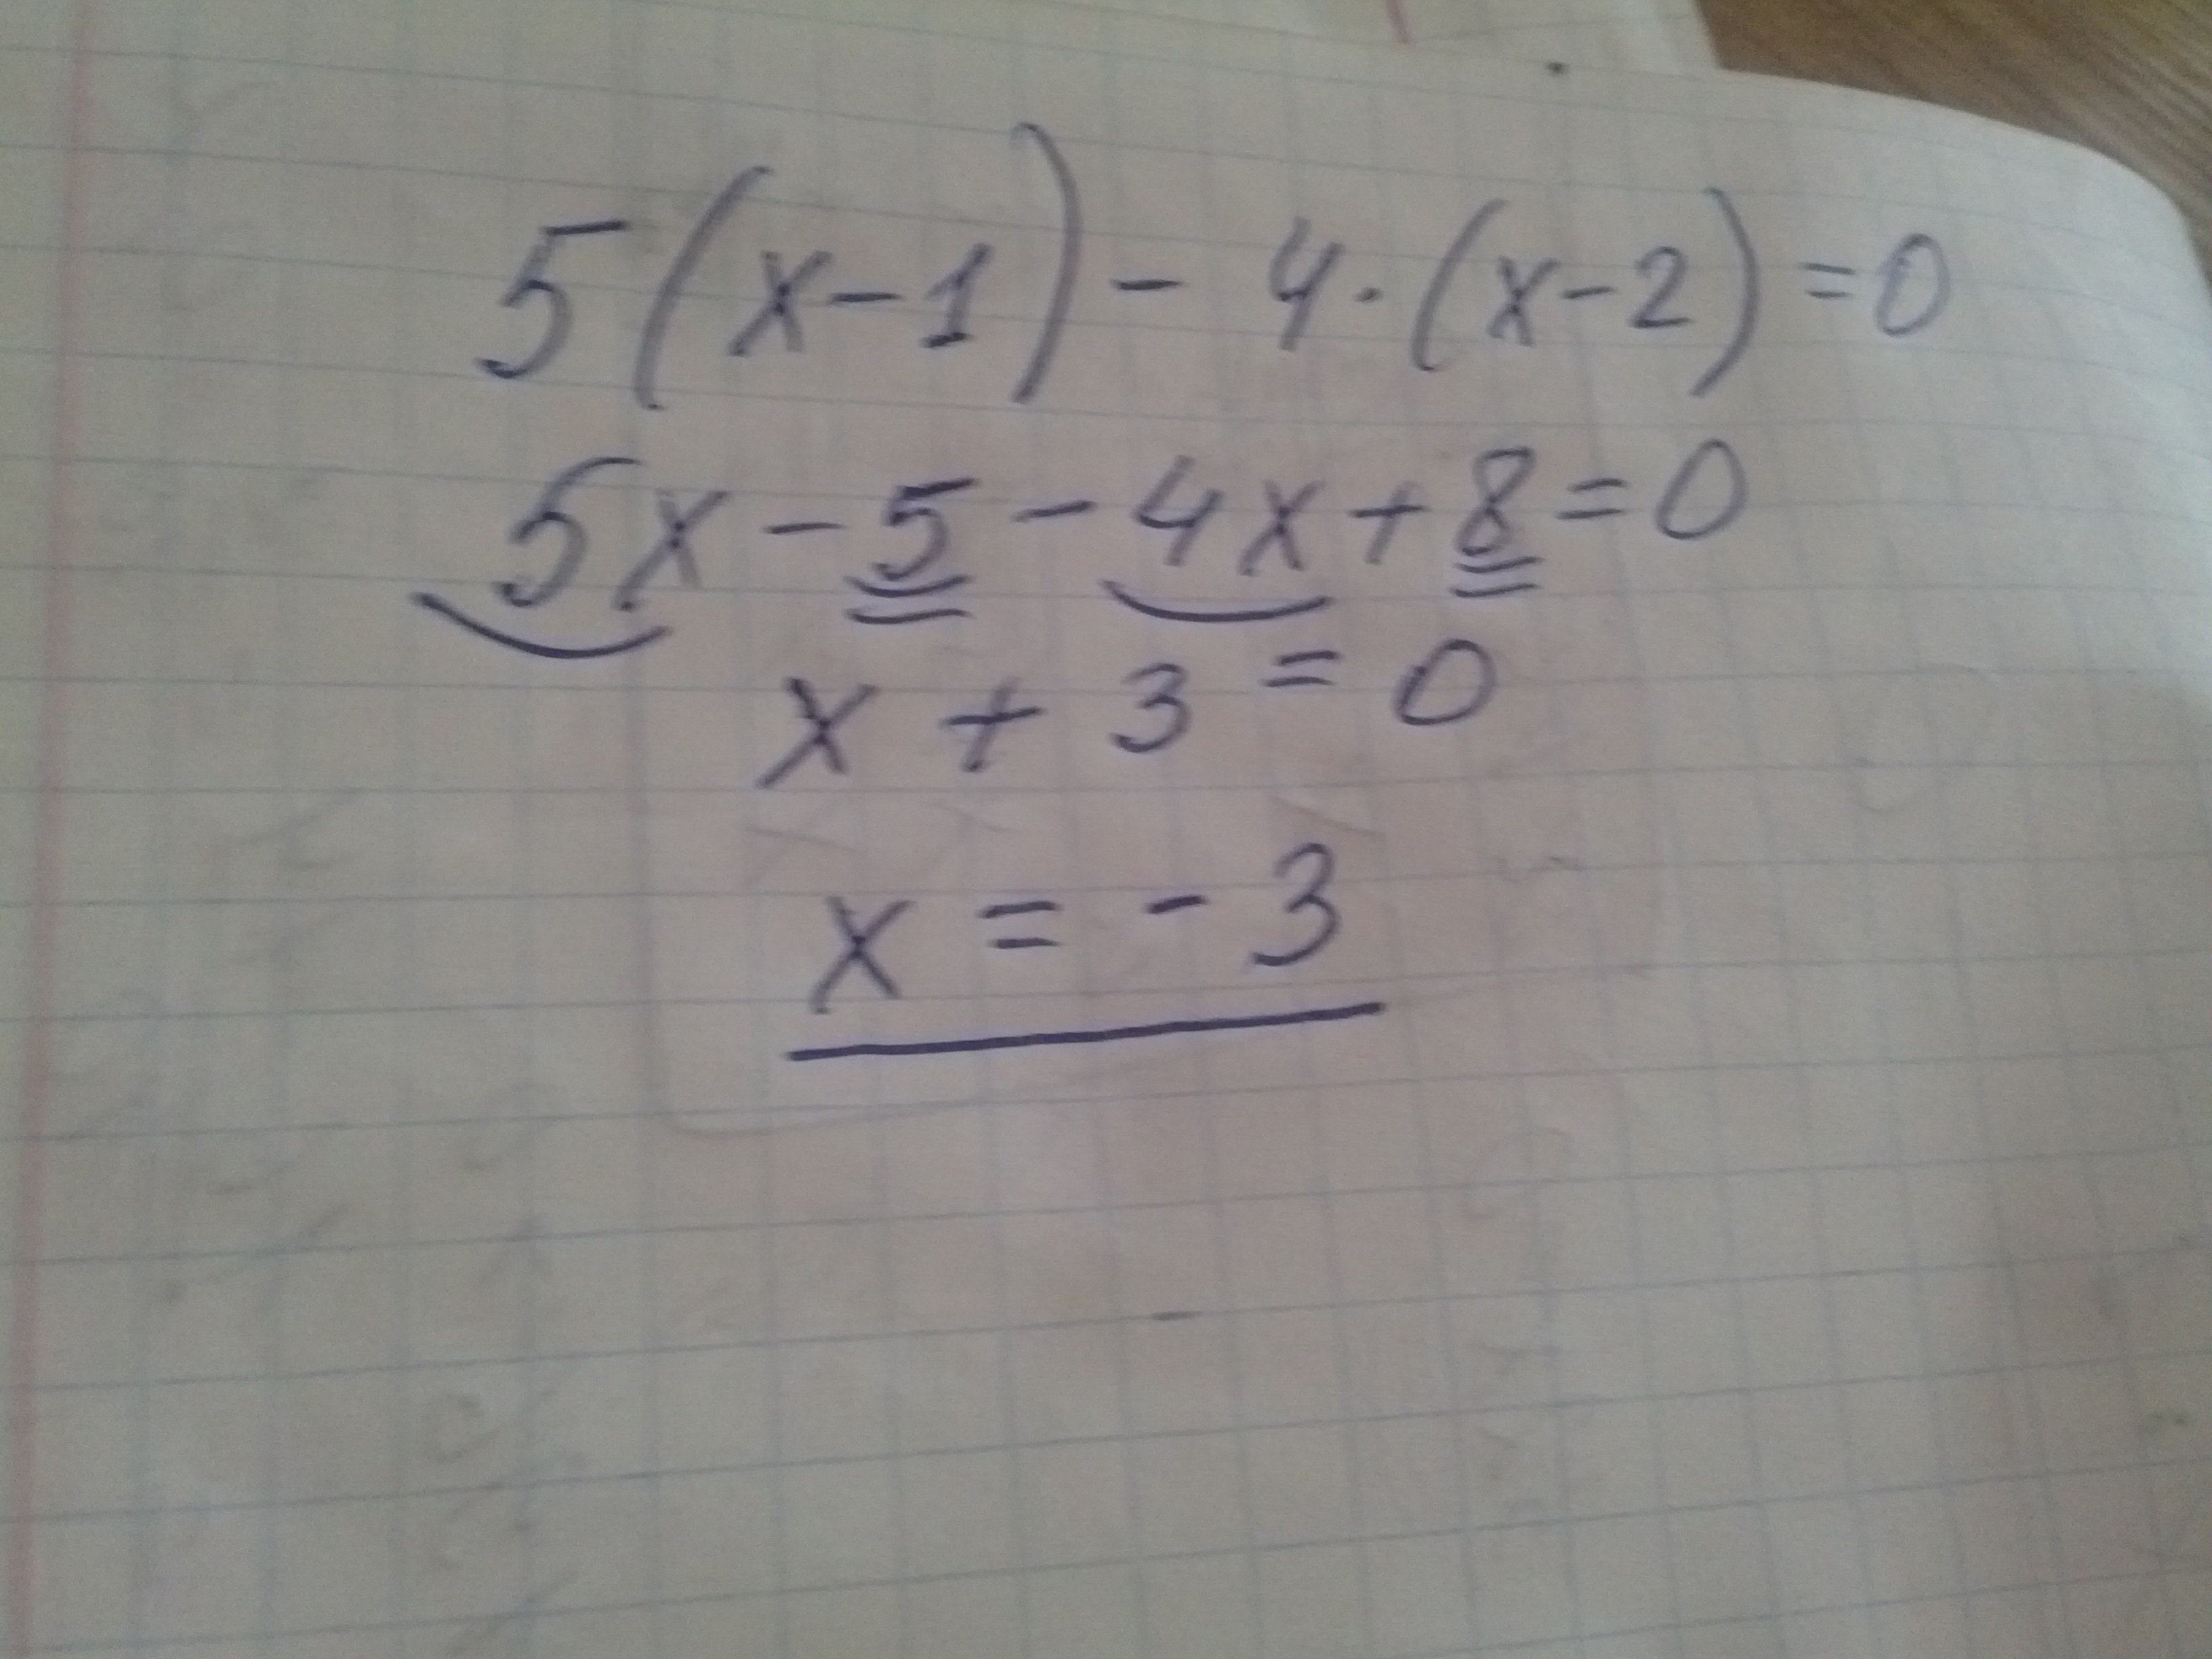 5(x-1)- 4·(x-2)=0
5x-5-4x+8=0
x+3=0
x=-3